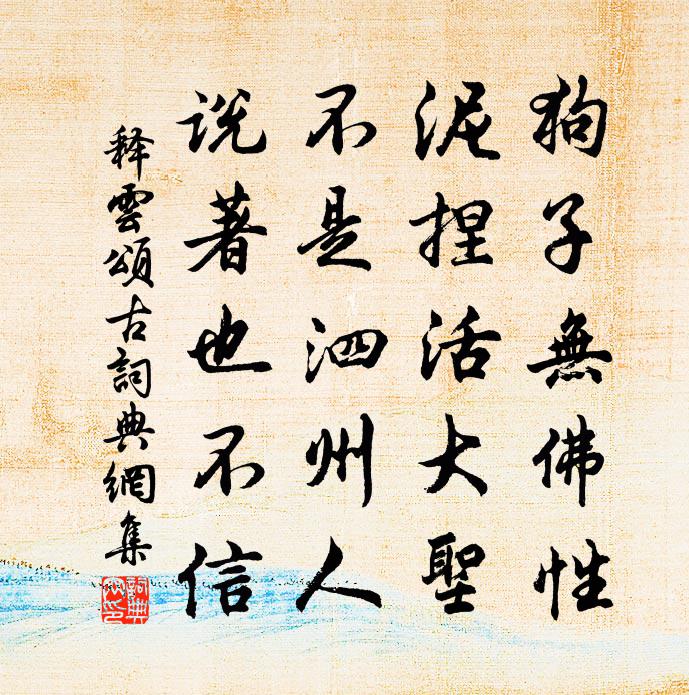 狗子無佛性
泥捏活大聖
不是泗州人
说著也不信
释雲頌古詞典網集